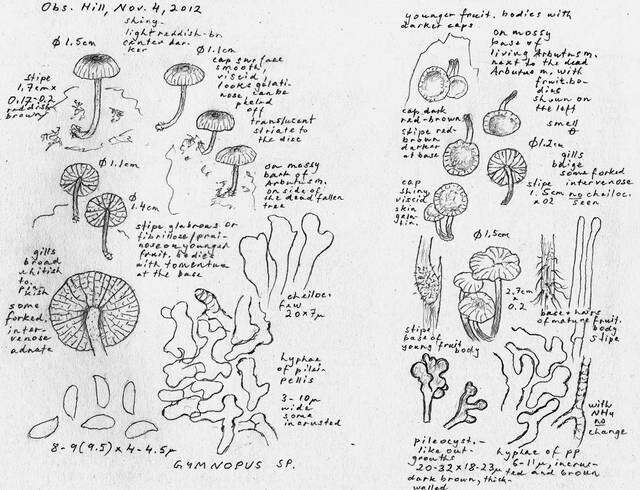 Obs. Hill, Nov. 4, 2012
shiny
light reddish-br.
center dar-
ker
Ø 1.5cm
Ø 1.1cm
cap surface
smooth,
viscid,
looks gelati-
nose, can be
peeled
off
translucent
striate to
the disc
stipe
1.7cm x
0.17-0.2
reddish
brown
Ø 1.1cm
Ø
1.4cm
on mossy
bark of
Arbutus m.
on side of
the dead fallen
tree
stipe glabrous or
fibrillose/prui-
nose on younger
fruit. bodies
with tomentum
at the base
gills
broad
whitish
to
pin-
kish
some
forked
inter-
venose
adnate
cheiloc.
few
20x7µ
hyphae
of pilei-
pellis
3-10µ
wide
some
incrusted
8-9(9.5) x 4-4.5µ
GYMNOPUS SP.
younger fruit. bodies with
darker caps
on mossy
base of
living Arbutus m.
next to the dead
Arbutus m. with
fruit. bo-
dies
shown on
the left
smell
θ
cap dark
red-brown
stipe red-
brown
darker
at base
Ø 1.2cm
gills
beige
some forked
intervenose
no cheiloc.
seen
stipe
1.5cm
x 02
cap
shiny,
viscid
skin
gela-
tin.
Ø 1.5cm
2.7cm
x
0.2
stipe
base of
young fruit
body
base + hairs
of mature fruit.
body
stipe
with
NH4
no
change
pileocyst.-
like out-
growths
20-32 x 18-23µ
dark brown, thick-
walled
hyphae of pp
6-11µ, incrus-
ted and brown